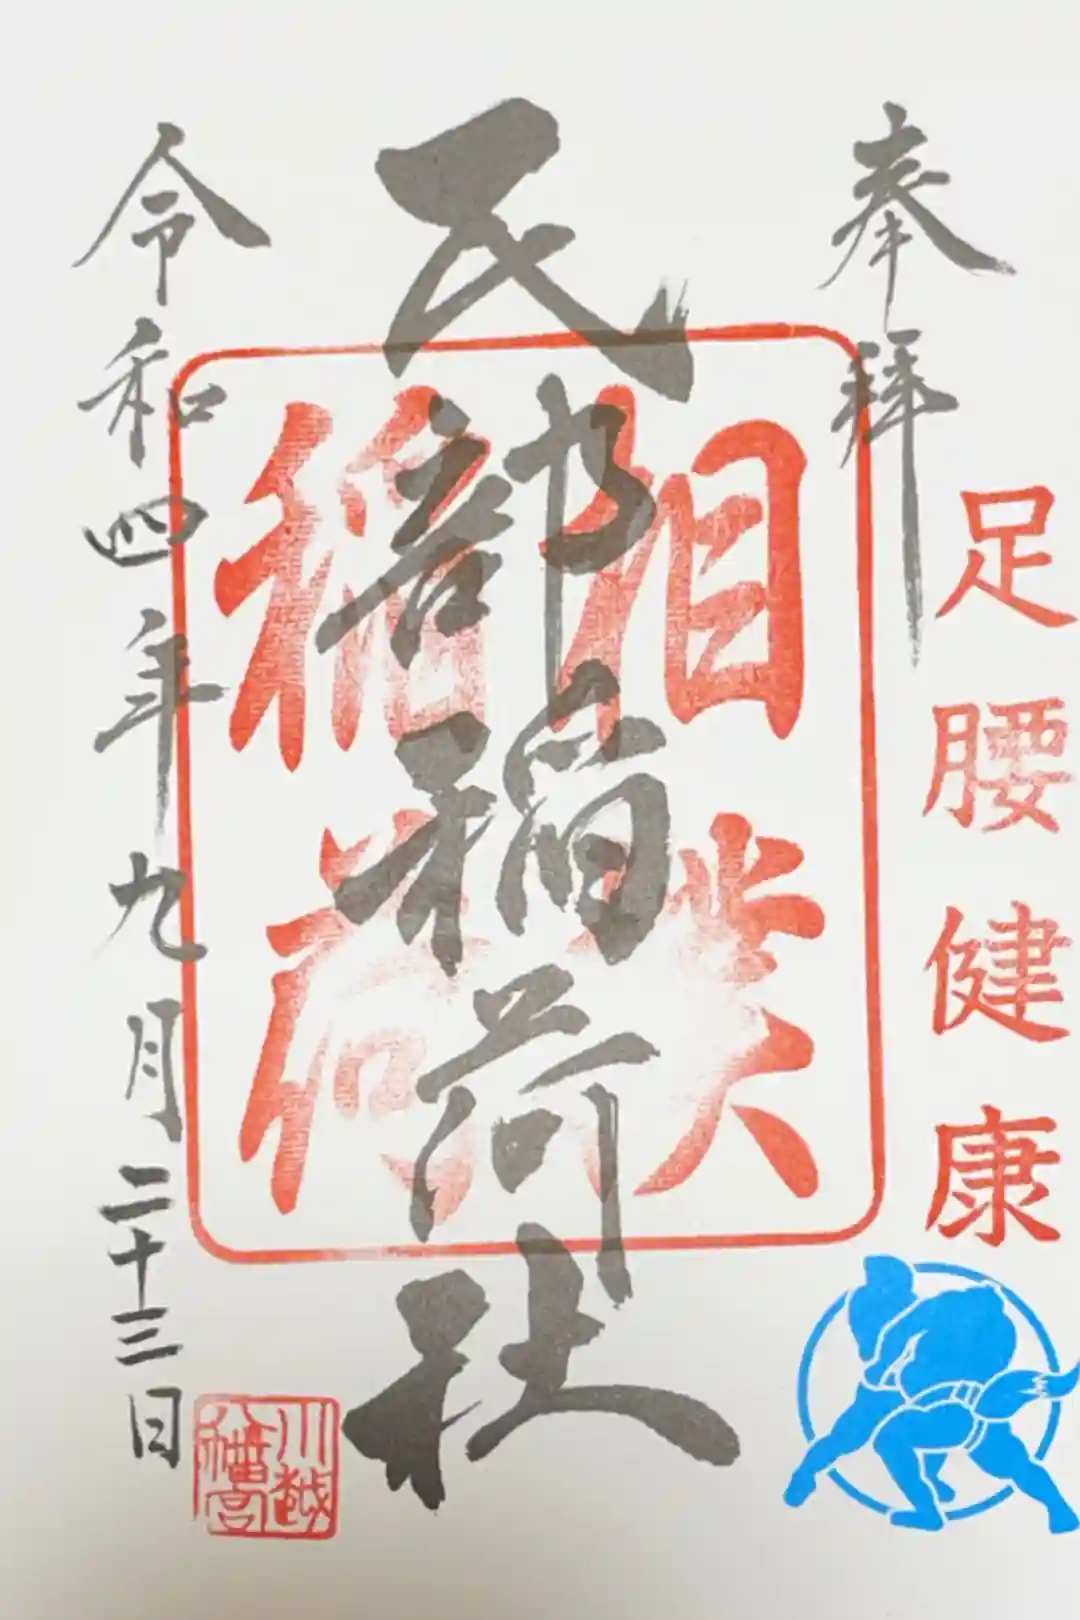 奉拝
足腰健康
民部稲荷社
相撲
稲荷
令和四年九月二十三日
川越
八幡宮